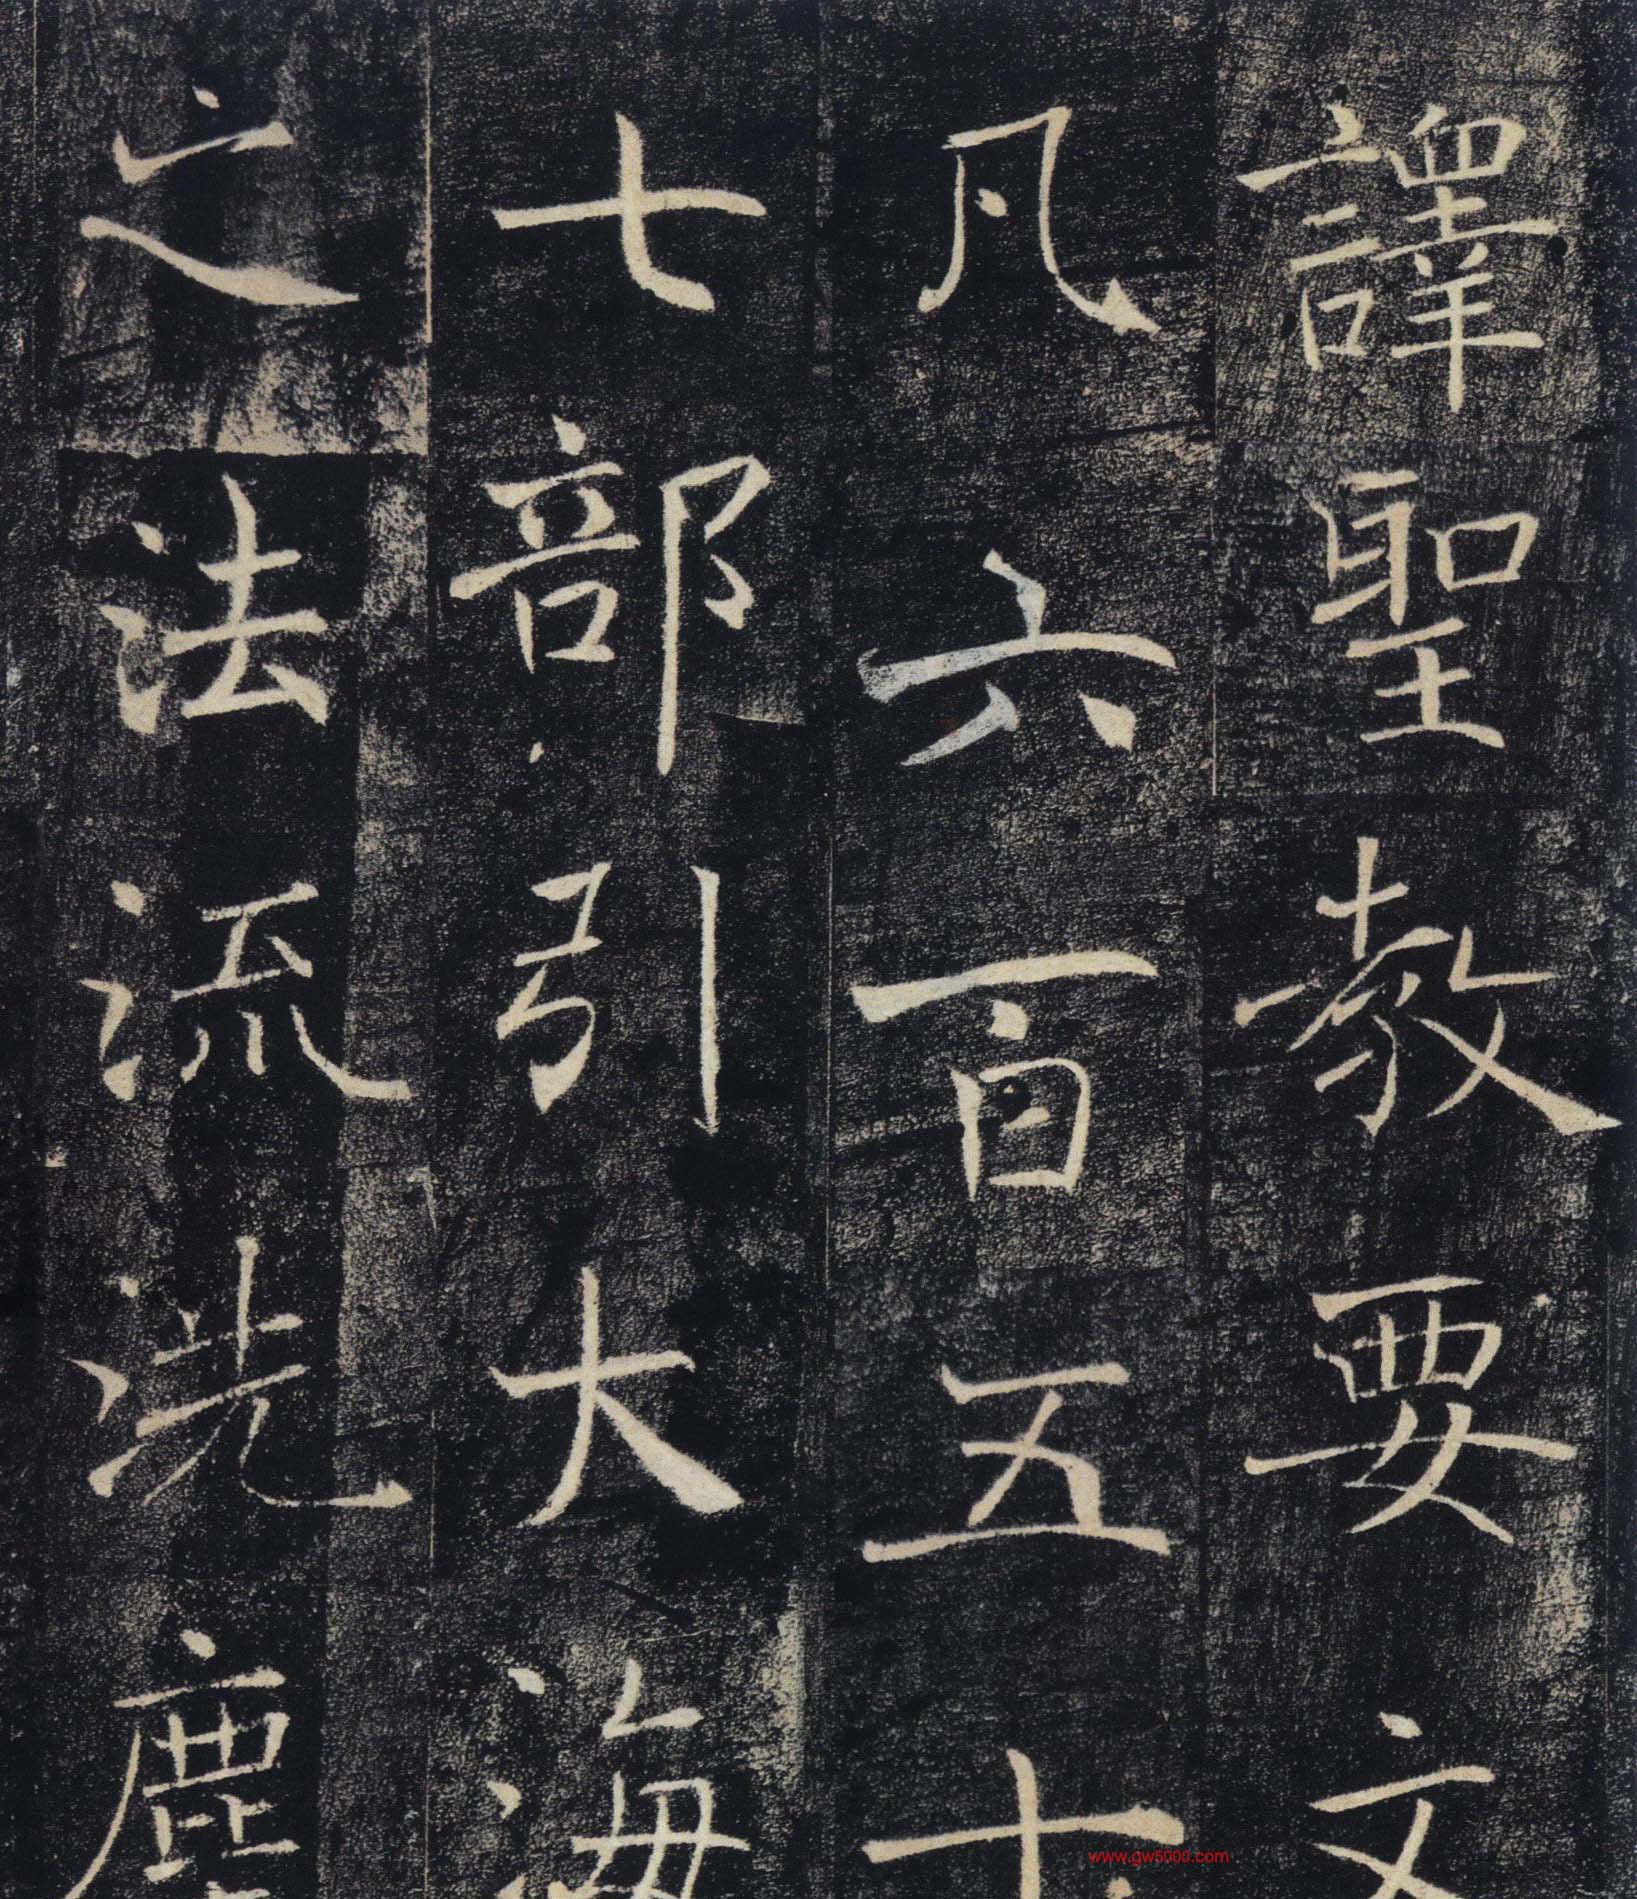 譯聖教要文
凡六百五十
七部引大海
之法流洗塵
www.gw5000.com